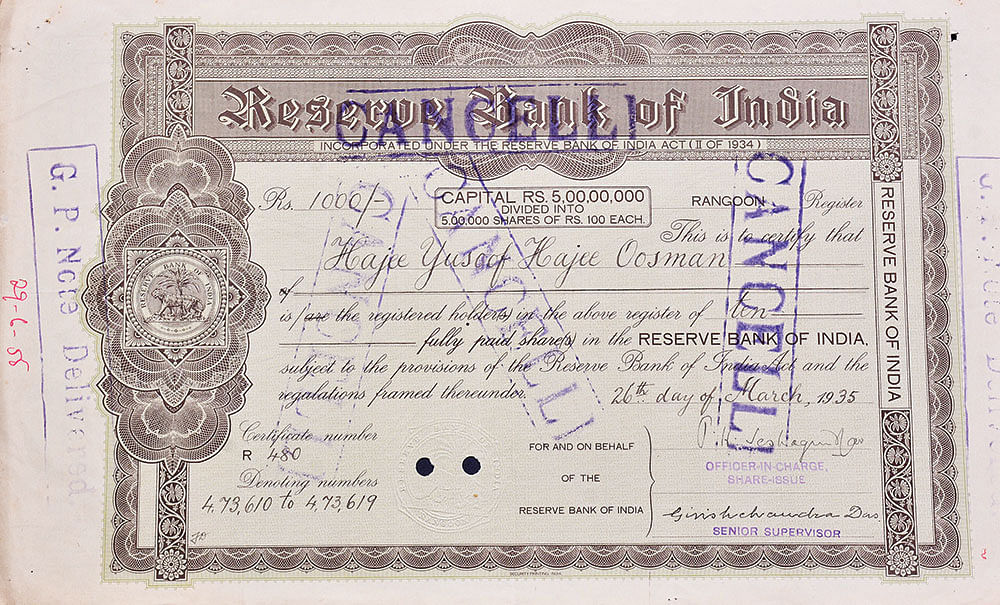 Reserve Bank of India
INCORPORATED UNDER THE RESERVE BANK OF INDIA ACT (II OF 1934)
Rs. 1000/-
CAPITAL RS. 5,00,00,000
DIVIDED INTO
5,00,000 SHARES OF RS. 100 EACH.
RANGOON Register
This is to certify that
Hajee Yusoof Hajee Oosman
of
is/are the registered holder(s) in the above register of ten
fully paid share(s) in the RESERVE BANK OF INDIA,
subject to the provisions of the Reserve Bank of India Act and the
regulations framed thereunder.
26th day of March, 1935
Certificate number
R 480
Denoting numbers
4,73,610 to 4,73,619
FOR AND ON BEHALF
OF THE
RESERVE BANK OF INDIA
OFFICER-IN-CHARGE,
SHARE-ISSUE
Girishchandra Das
SENIOR SUPERVISOR
RESERVE BANK OF INDIA
RESERVE BANK OF INDIA
CANCELL
CANCELL
CANCELL
G. P. Note Delivered
SECURITY PRINTING INDIA